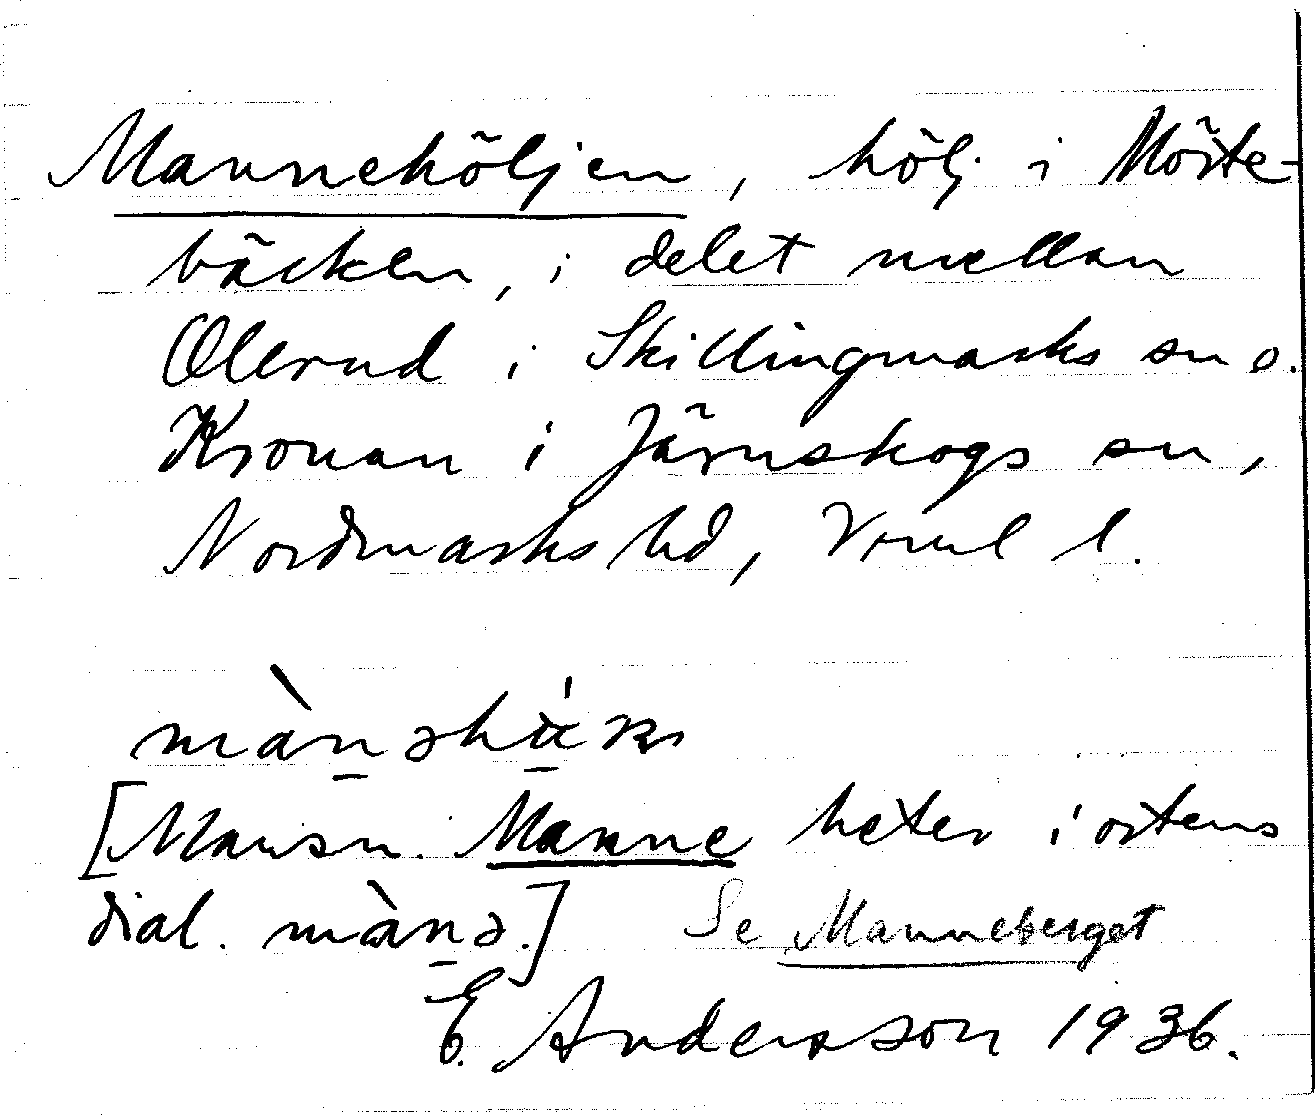 Manneköljen, hölj i Mörte-
bäcken, i delet mellan
Olerud i Skillingmarks sn o.
Kronan i Järnskogs sn,
Nordmarks hd, Vrml l.
[Mansn. Manne heter i ortens
dial. mànə.] Se Manneberget
E. Andersson 1936.